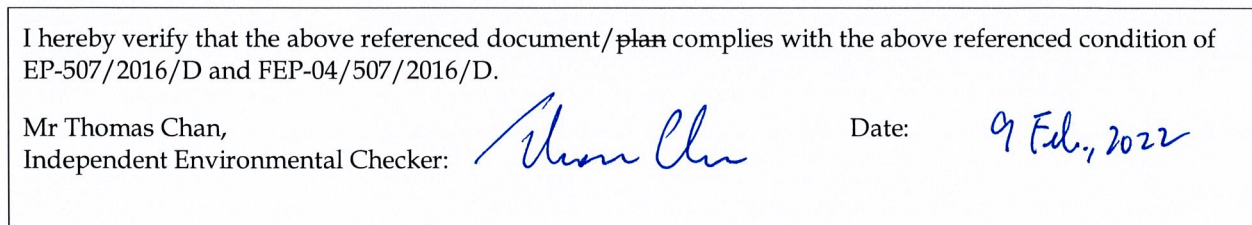 I hereby verify that the above referenced document/plan complies with the above referenced condition of
EP-507/2016/D and FEP-04/507/2016/D.
Mr Thomas Chan,
Independent Environmental Checker:
Date: 9 Feb., 2022